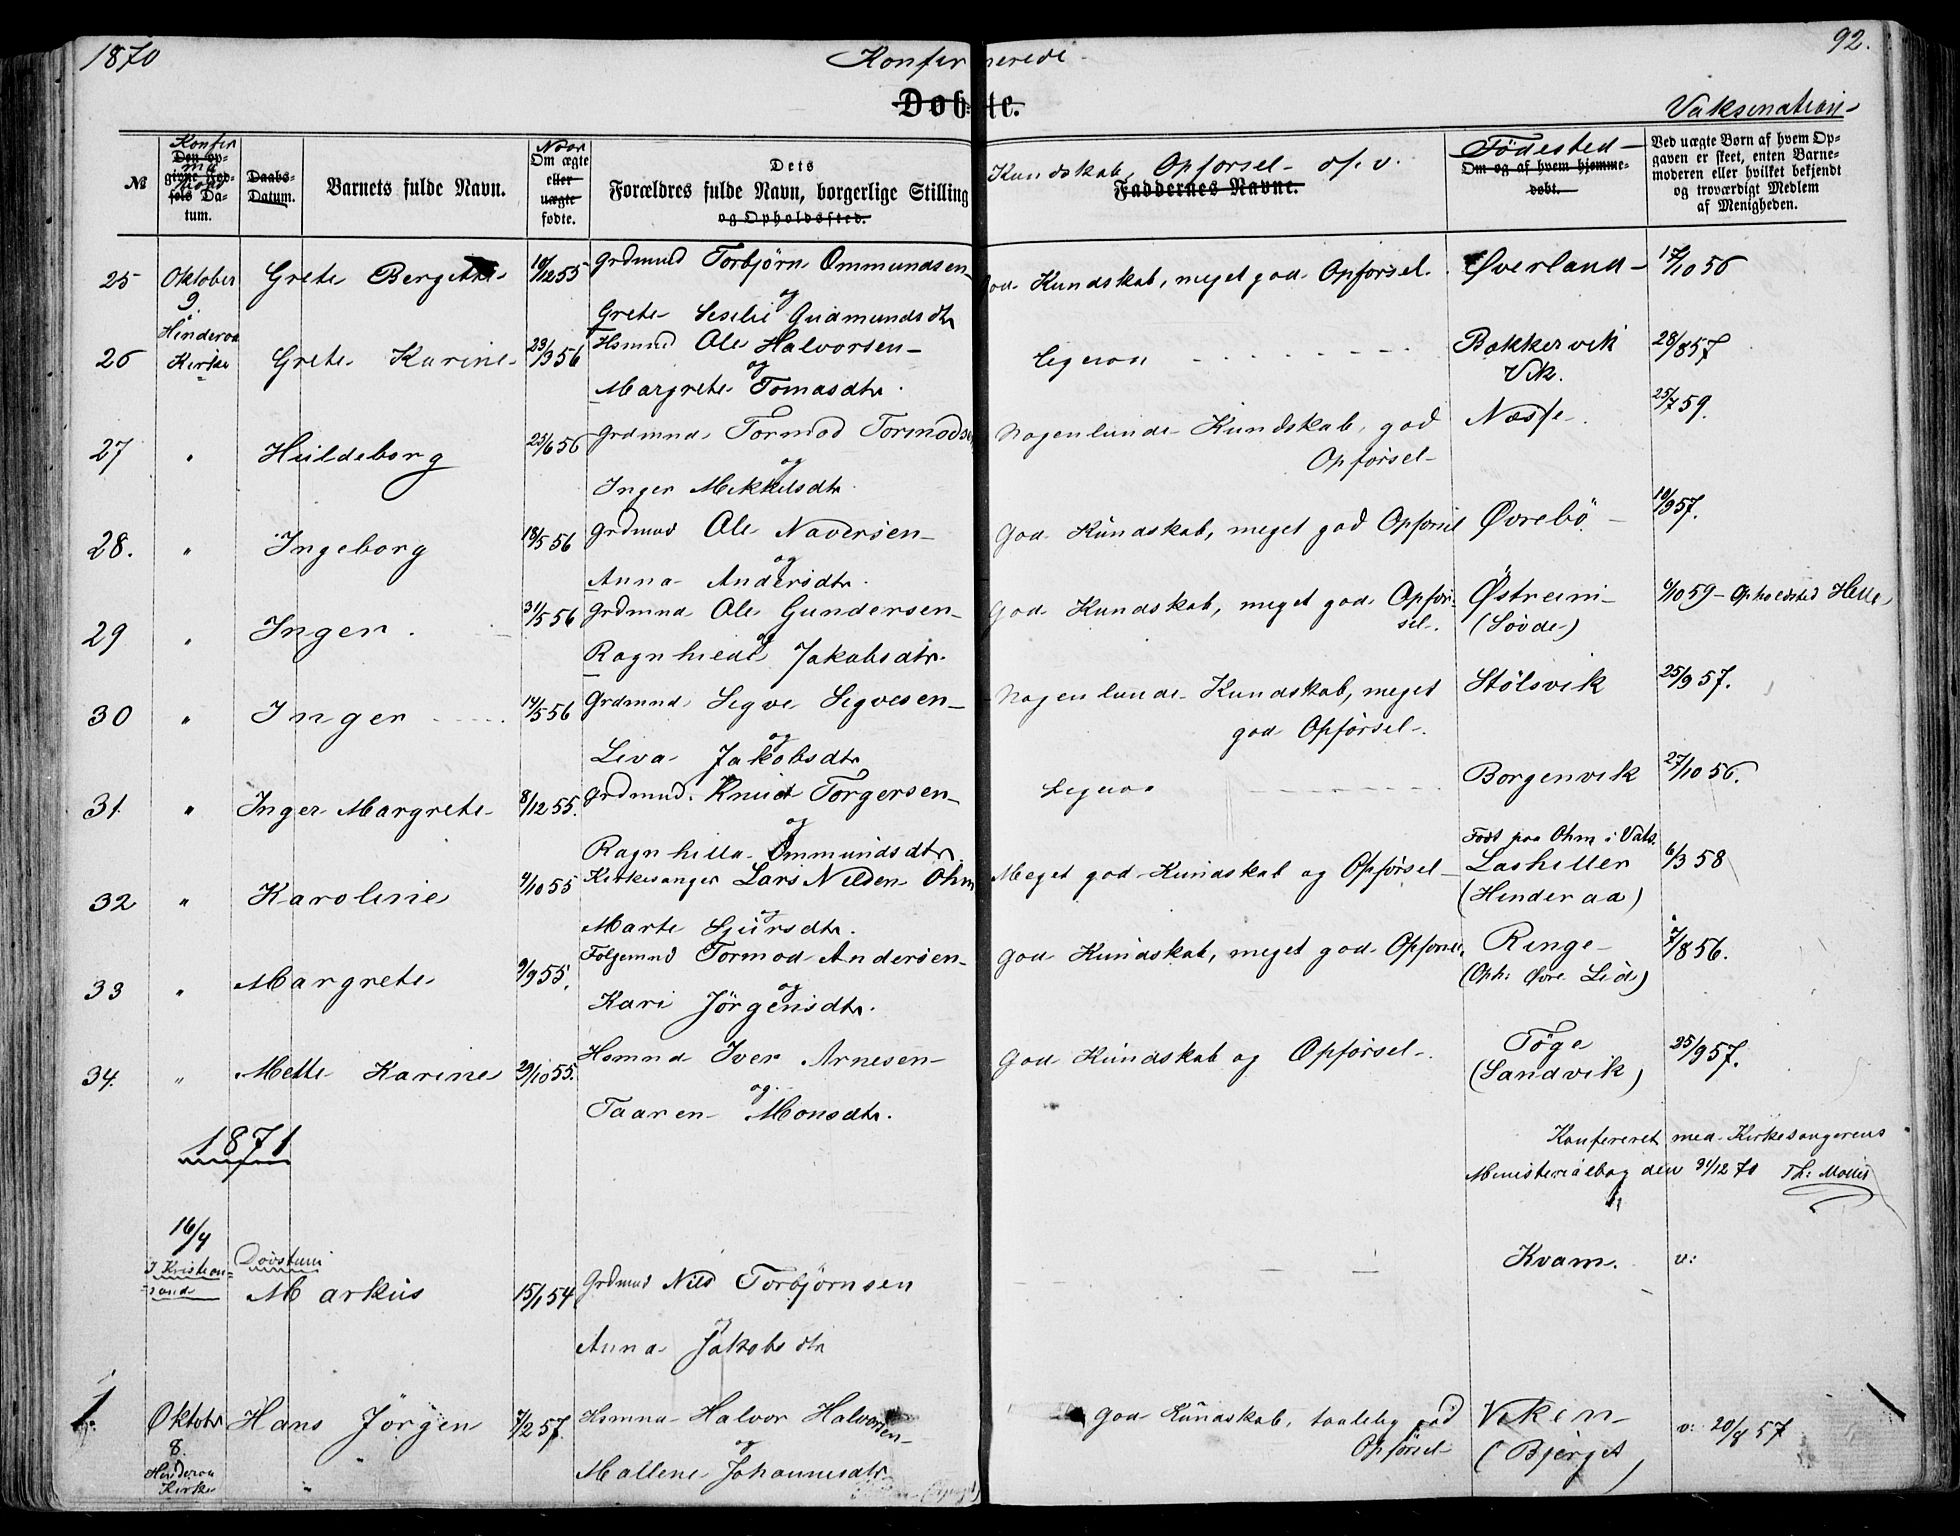 1870 Konfirmerede 92.
Døbte. Vaksination
№ Konfirmations Den opgivne Fødsels Datum. Daabs-Datum. Barnets fulde Navn. Naar Om ægte eller uægte fødte. Dets Forældres fulde Navn, borgerlige Stilling og Opholdssted. Kundskab, Opførsel o.s.v. Faddernes Navne. Fødested Om og af hvem hjemmedøbt. Ved uægte Børn af hvem Opgaven er skeet, enten Barnemoderen eller hvilket bekjendt og troværdigt Medlem af Menigheden.
25 Oktober 9. Grete Bergitte 10/12 55 Grdmnd Torbjørn Ommundsen God Kundskab, meget god Opførsel. Øverland 17/10 56
og
Grete Seselie Gudmundsdtr
26 Hinderaa Kirke Grete Karine 23/3 56 Hsmnd Ole Halvorsen Ligesaa Bakkervik Vik. 28/8 57
og
Margrete Tomasdtr.
27 " Huldeborg 23/6 56 Grdmnd Tormod Tormodsen Nogenlunde Kundskab, god Næsse 25/7 59.
og Opførsel
Inger Mikkelsdtr.
28. " Ingeborg 18/5 56 Grdmnd Ole Naversen God Kundskab, meget god Opførsel Øvrebø 19/9 57.
og
Anna Andersdtr.
29 " Inger. 31/5 56 Grdmnd Ole Gundersen God Kundskab, meget god Opfør- Østreim 6/10 59 - Opholdsted Helle
og sel. (Sövde)
Ragnhilde Jakobsdtr.
30 " Inger 14/5 56 Grdmnd. Segve Segvesen Nogenlunde Kundskab, meget Stölsvik 25/9 57.
og god Opførsel.
Liva Jakobsdtr
31. " Inger Margrete 8/12 55. Grdmnd. Knut Torgersen Ligesaa Borgenvik 27/10 56.
og
Ragnhilla Ommundsdtr. Født paa Ohm i Vats.
32 " Karoline 4/10 55 Kirkesanger Lars Nilsen Ohm Meget god Kundskab og Opførsel Lashiller 6/3 58
og (Hinderaa)
Marte Sjursdtr.
33 " Margrete 9/9 55. Følgemnd Tormod Andersen God Kundskab, meget god Opførsel. Ringe 7/8 56.
og (Oph: Øvre Lid)
Kari Jörgensdtr.
34. " Mette Karine 29/10 55. Hsmnd Iver Arnesen God Kundskab og Opførsel. Töge 25/9 57.
og (Sandvik)
Taaren Monsdtr.
1871 Konfereret med Kirkesangerens
Ministerialbog den 31/12 70 Th: Møller
16/4
I Kristiansand Døvstum
Markus 15/1 54 Grdmnd Nils Torbjörnsen Kvam. v:
og
Anna Jakobsdtr
1. Oktobr 8. Hans Jörgen 7/2 57. Hsmnd Halvor Halvorsen God Kundskab, taalelig god Viken v: 20/8 57
Hinderaa Kirke og Opførsel (Bjerget)
Mallene Johannesdtr